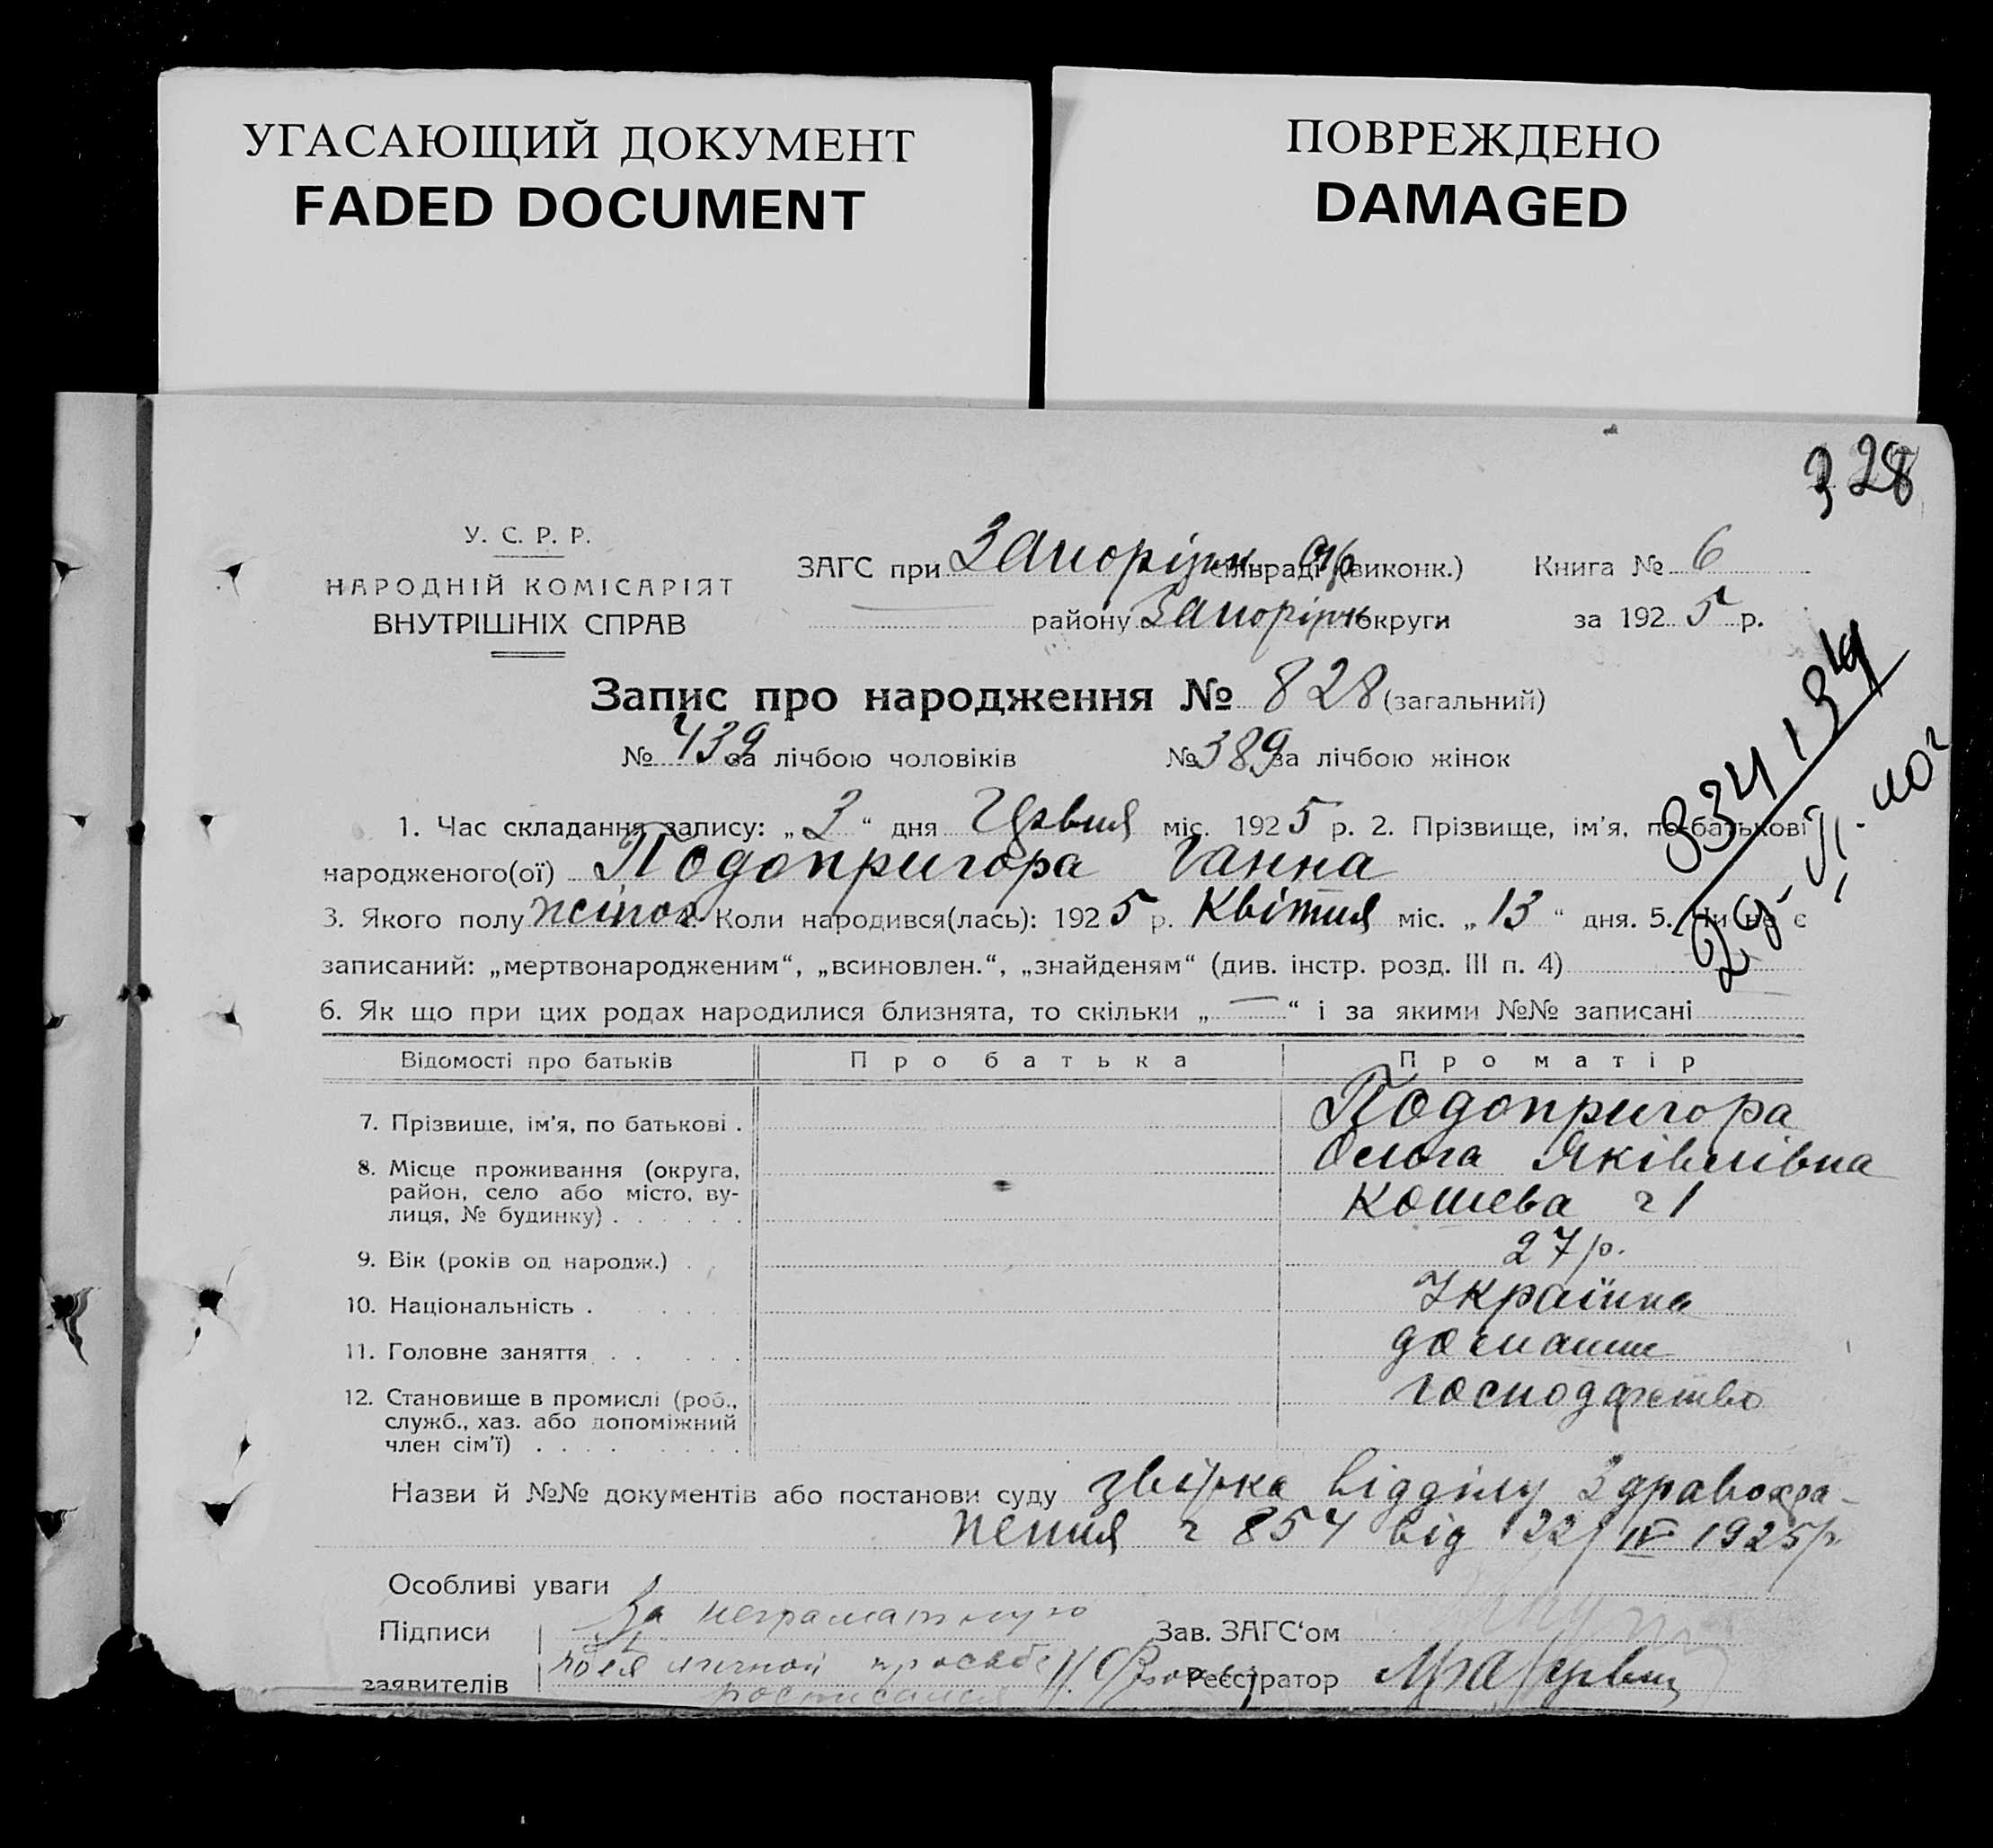 УГАСАЮЩИЙ ДОКУМЕНТ
FADED DOCUMENT
ПОВРЕЖДЕНО
DAMAGED
328
У. С. Р. Р.
НАРОДНІЙ КОМІСАРІЯТ
ВНУТРІШНІХ СПРАВ
ЗАГС при Запоріжк Окр сільраді (виконк.)
району Запоріжк округи
Книга № 6
за 1925 р.
Запис про народження № 828 (загальний)
№ 439 за лічбою чоловіків № 389 за лічбою жінок
1. Час складання запису: „ 3 “ дня Червня міс. 1925 р. 2. Прізвище, ім'я, по-батькові
народженого(ої) Подопригора Ганна
3. Якого полу жіноч 4. Коли народився(лась): 1925 р. Квітня міс. „ 13 “ дня. 5. Чи не є
записаний: „мертвонародженим“, „всиновлен.“, „знайденям“ (див. інстр. розд. III п. 4)
6. Як що при цих родах народилися близнята, то скільки „ — “ і за якими №№ записані
Відомості про батьків Про батька Про матір
7. Прізвище, ім'я, по батькові . Подопригора
Ольга Яківлівна
8. Місце проживання (округа,
район, село або місто, ву-
лиця, № будинку) . . . . . . Кошева ч 1
9. Вік (років од народж.) . . 27 р.
10. Національність . . . . Українка
11. Головне заняття . . . . . домашнє
господарство
12. Становище в промислі (роб.,
служб., хаз. або допоміжний
член сім'ї) . . . . . . . .
Назви й №№ документів або постанови суду звістка відділу Здравохра-
нения ч 854 від 22/IV 1925р
Особливі уваги
Підписи За неграматную
заявителів по ея личной просьбе
росписался
Зав. ЗАГС'ом
Реєстратор